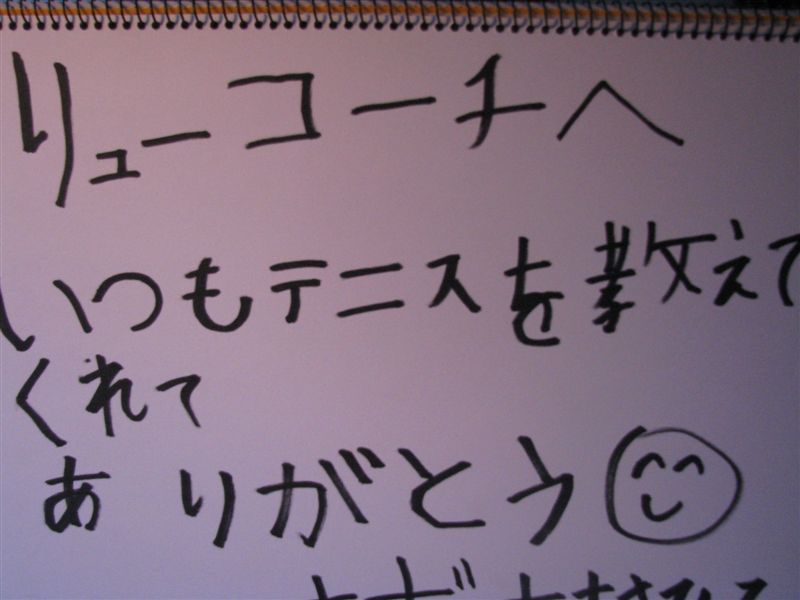 リューコーチへ
いつもテニスを教えて
くれて
ありがとう